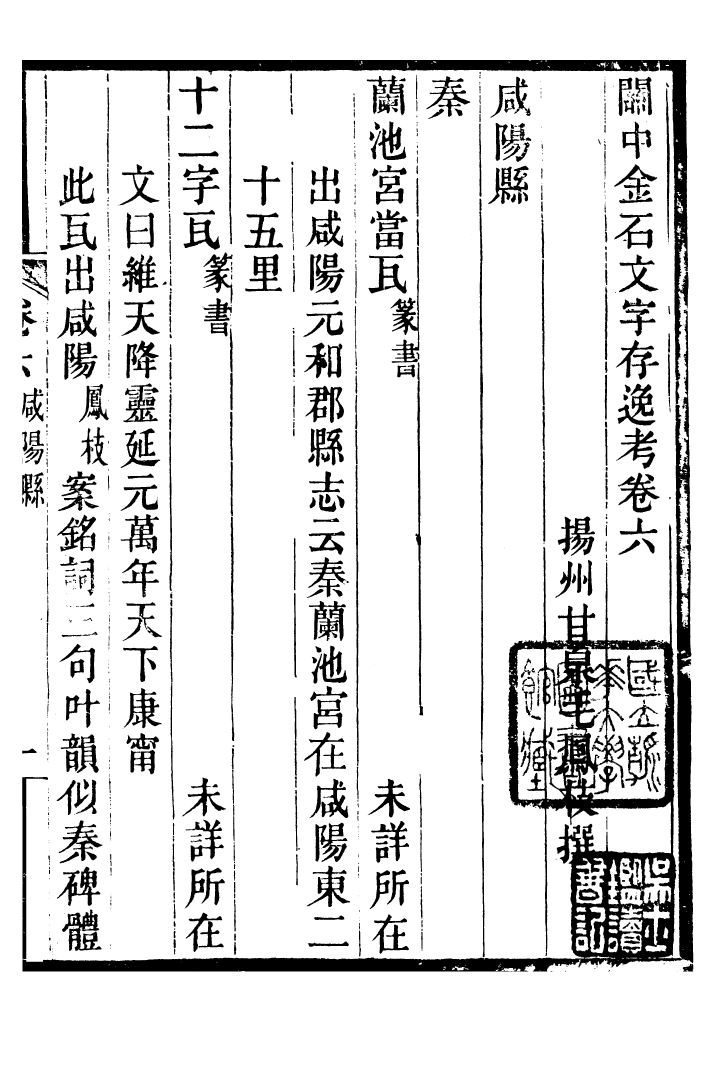 關中金石文字存逸考卷六
揚州甘泉毛鳳枝撰
咸陽縣
秦
蘭池宮當瓦 篆書 未詳所在
出咸陽元和郡縣志云秦蘭池宮在咸陽東二
十五里
十二字瓦 篆書 未詳所在
文曰維天降靈延元萬年天下康甯
此瓦出咸陽 鳳枝 案銘詞三句叶韻似秦碑體
卷六 咸陽縣 一